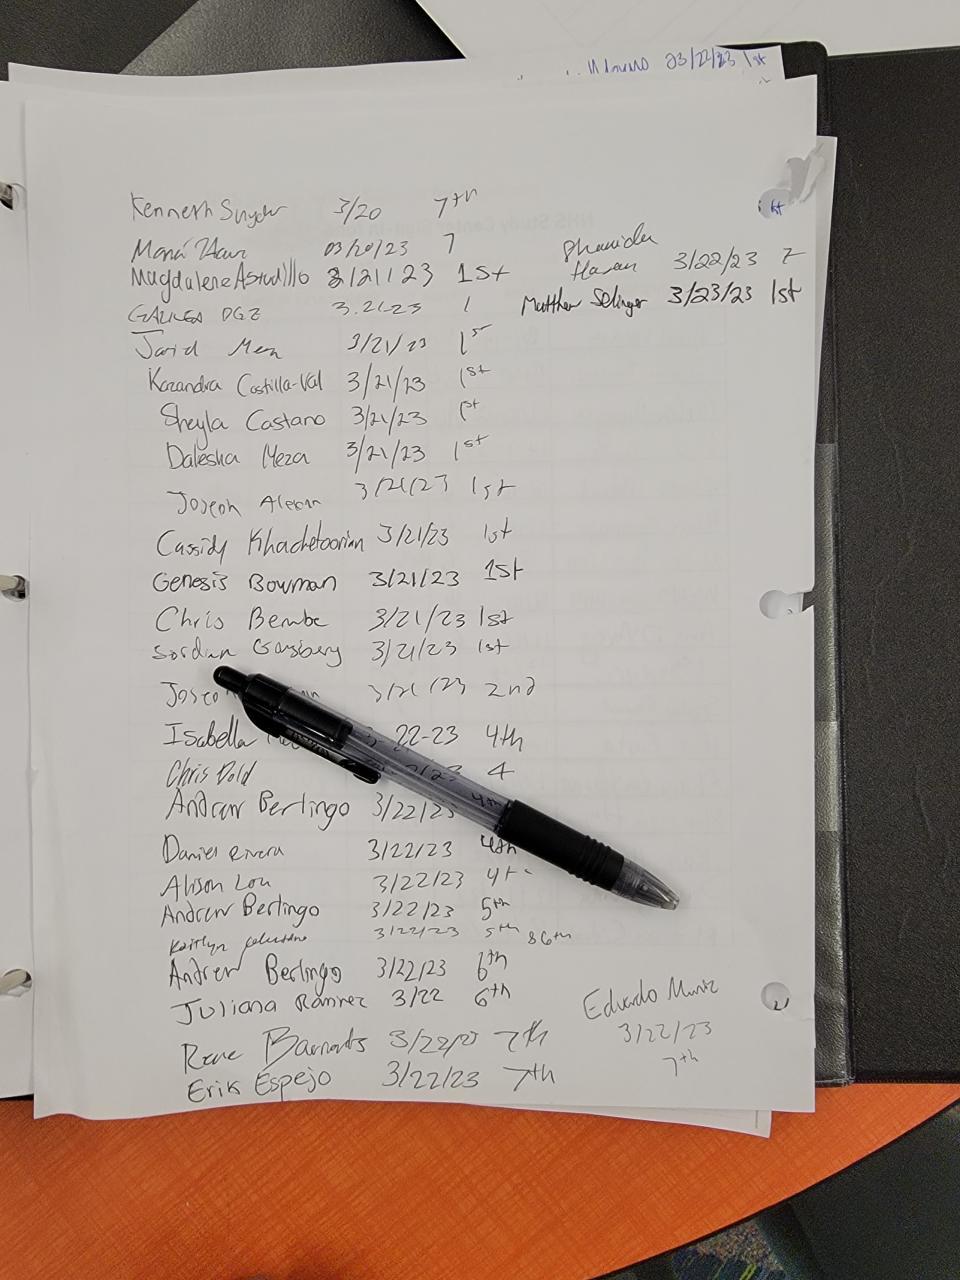 23/22/23 1st
Kenneth Snyder 3/20 7th
03/20/23 7
Magdalene Astudillo 3/21/23 1st
3.21.23 1
Jarid 3/21/23 1st
Kazandra Castilla-Val 3/21/23 1st
Sheyla Castano 3/21/23 1st
Dalesha Meza 3/21/23 1st
Joseph 3/21/23 1st
Cassidy Khachetoorian 3/21/23 1st
Genesis Bowman 3/21/23 1st
Chris Bembe 3/21/23 1st
3/21/23 1st
3/21/23 2nd
Isabella 3-22-23 4th
Chris Dold 4
Andrew Berlingo 3/22/23 4th
Daniel Rivera 3/22/23 4th
Alison Lou 3/22/23
Andrew Berlingo 3/22/23 5th
Kaitlyn 3/22/23 5th &6th
Andrew Berlingo 3/22/23 6th
Juliana Ramirez 3/22 6th
Rene 3/22/23 7th
Erik Espejo 3/22/23 7th
Hasan 3/22/23 7
Matthew Selinger 3/23/23 1st
Eduardo Muniz
3/22/23
7th